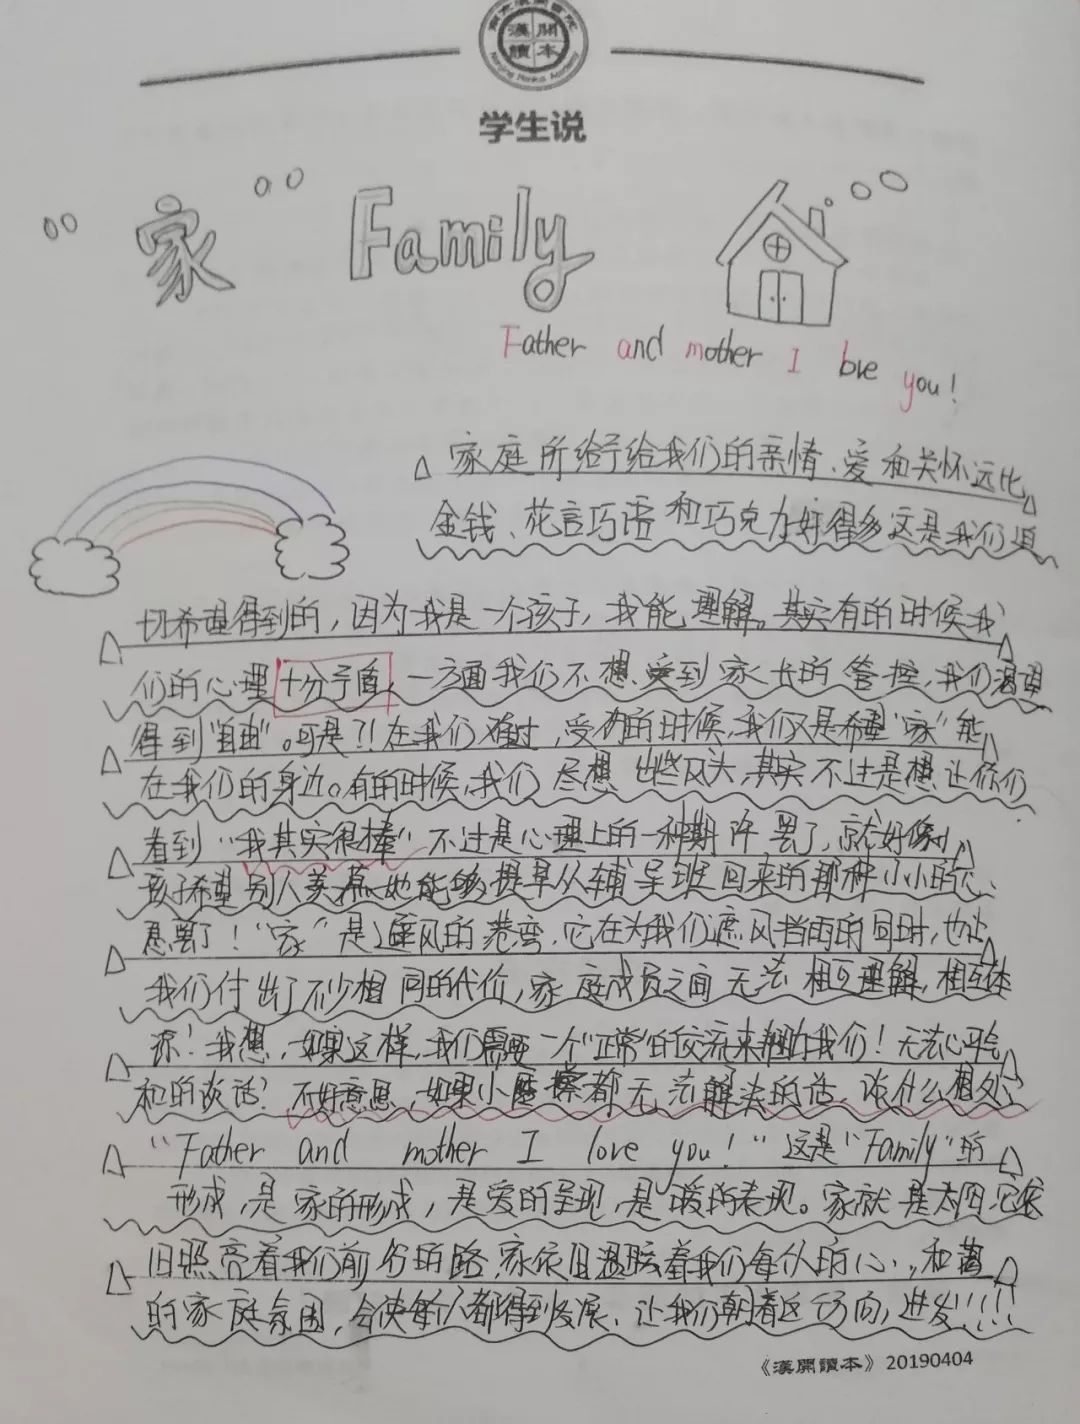 漢開
讀本
Nanjing Hankai Academy
学生说
"家" Family
Father and mother I love you!
家庭所给予给我们的亲情、爱和关怀远比
金钱、花言巧语和巧克力好得多这是我们迫
切希望得到的，因为我是一个孩子，我能理解。其实有的时候我
们的心理十分矛盾，一方面我们不想受到家长的管控，我们渴望
得到"自由"。可是？！在我们难过，受伤的时候，我们又是希望"家"能
在我们的身边。有的时候，我们尽想出些风头，其实不过是想让你们
看到"我其实很棒"不过是心理上的一种期许罢了，就好像小
孩子希望别人羡慕她能够提早从辅导班回来的那种小小的心
思罢了！"家"是避风的港湾，它在为我们遮风挡雨的同时，也让
我们付出了不少相同的代价，家庭成员之间无法相互理解，相互体
谅！我想，如果这样，我们需要一个"正常"的交流来帮助我们！无法心平气
和的谈话？不好意思，如果小摩擦都无法解决的话，谈什么相处？
"Father and mother I love you！"这是"Family"的
形成，是家的形成，是爱的呈现，是暖的表现。家就是太阳，它依
旧照亮着我们前行的路，家依旧温暖着我们每个人的心，和蔼
的家庭氛围，会使每个人都得到发展，让我们朝着这方向，进发！！！！
《漢開讀本》20190404